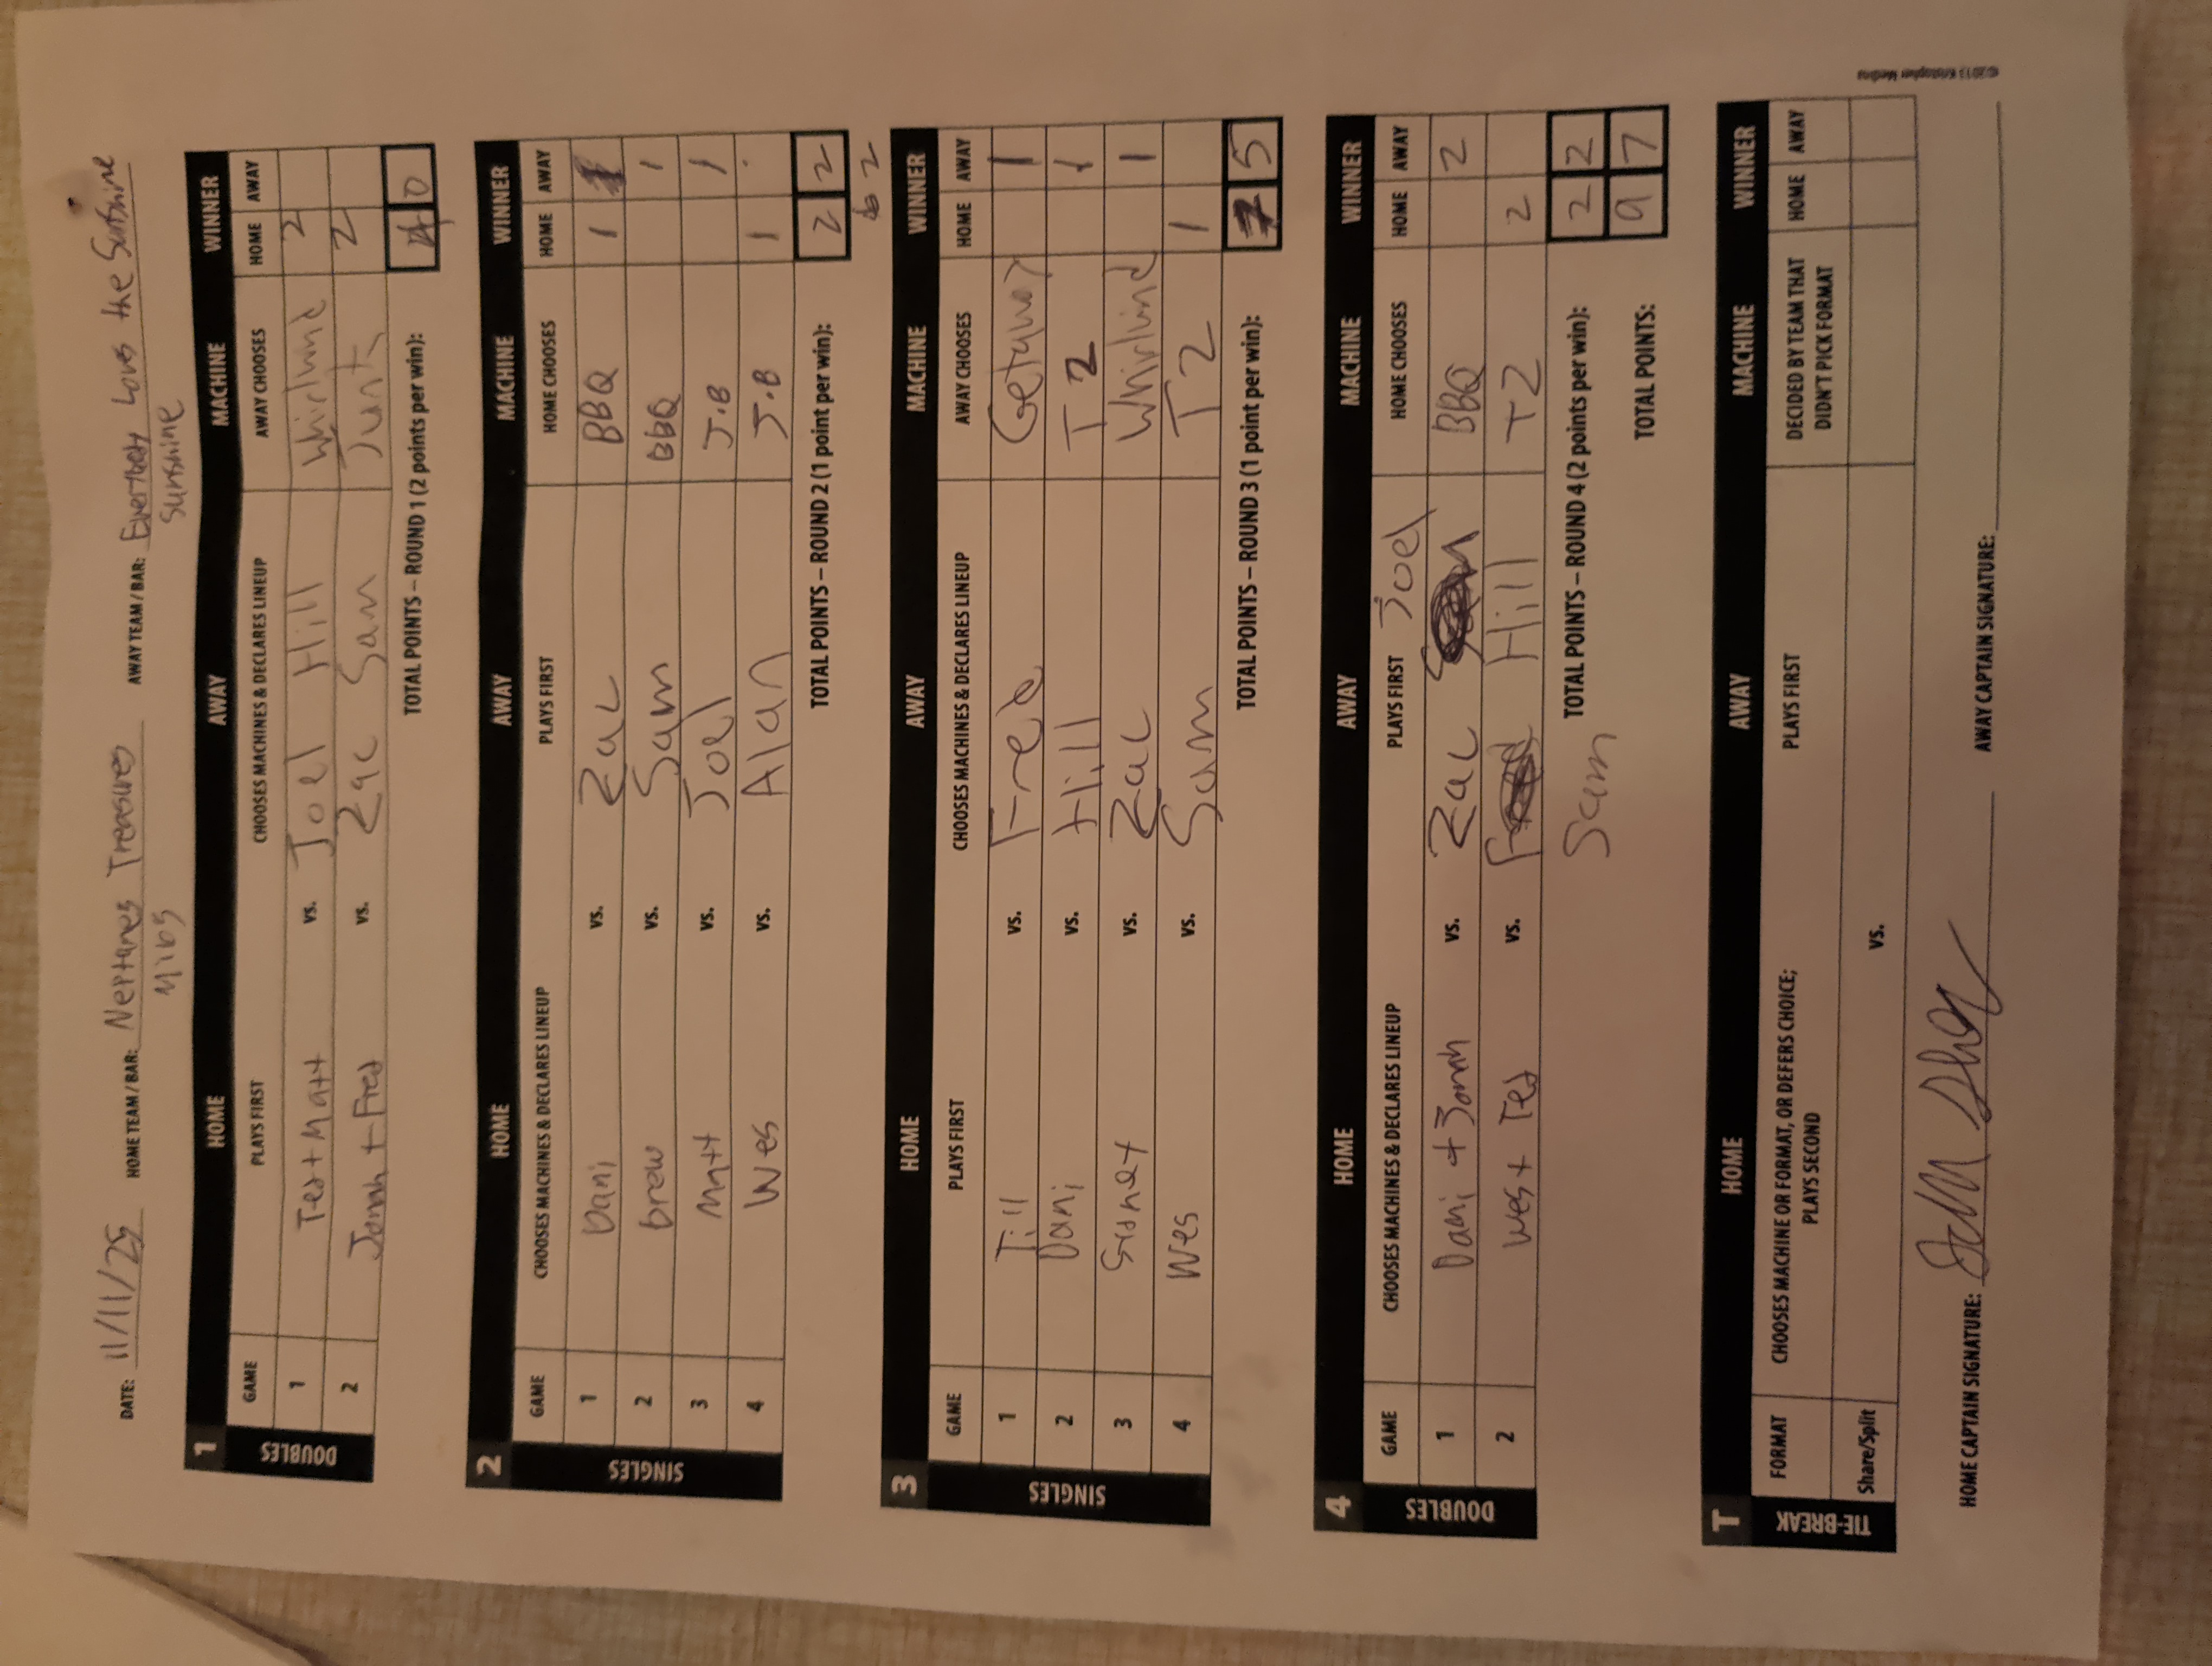 DATE: 11/11/25 HOME TEAM / BAR: Neptunes Treasures AWAY TEAM / BAR: Everybody Loves the Sunshine
Nibs Sunshine
1 HOME AWAY MACHINE WINNER
DOUBLES
GAME PLAYS FIRST CHOOSES MACHINES & DECLARES LINEUP AWAY CHOOSES HOME AWAY
1 Ted + Matt vs. Joel Hill Whirlwind 2
2 Jonah + Fred vs. Zac Sam Junk 2
TOTAL POINTS – ROUND 1 (2 points per win): 4 0
2 HOME AWAY MACHINE WINNER
SINGLES
GAME CHOOSES MACHINES & DECLARES LINEUP PLAYS FIRST HOME CHOOSES HOME AWAY
1 Dani vs. Zac BBQ 1
2 Drew vs. Sam BBQ 1
3 Matt vs. Joel J.B 1
4 Wes vs. Alan J.B 1
TOTAL POINTS – ROUND 2 (1 point per win): 2 2
6 2
3 HOME AWAY MACHINE WINNER
SINGLES
GAME PLAYS FIRST CHOOSES MACHINES & DECLARES LINEUP AWAY CHOOSES HOME AWAY
1 Jill vs. Fred Getaway 1
2 Dani vs. Hill T2 1
3 vs. Zac Whirlwind 1
4 Wes vs. Sam T2 1
TOTAL POINTS – ROUND 3 (1 point per win): 7 5
4 HOME AWAY MACHINE WINNER
DOUBLES
GAME CHOOSES MACHINES & DECLARES LINEUP PLAYS FIRST HOME CHOOSES HOME AWAY
1 Dani + Jonah vs. Zac Joel BBQ 2
2 Wes + Ted vs. Hill T2 2
Sam
TOTAL POINTS – ROUND 4 (2 points per win): 2 2
TOTAL POINTS: 9 7
T HOME AWAY MACHINE WINNER
TIE-BREAK
FORMAT CHOOSES MACHINE OR FORMAT, OR DEFERS CHOICE; PLAYS SECOND PLAYS FIRST DECIDED BY TEAM THAT DIDN'T PICK FORMAT HOME AWAY
Share/Split vs.
HOME CAPTAIN SIGNATURE: AWAY CAPTAIN SIGNATURE:
©2013 Kristopher Medina